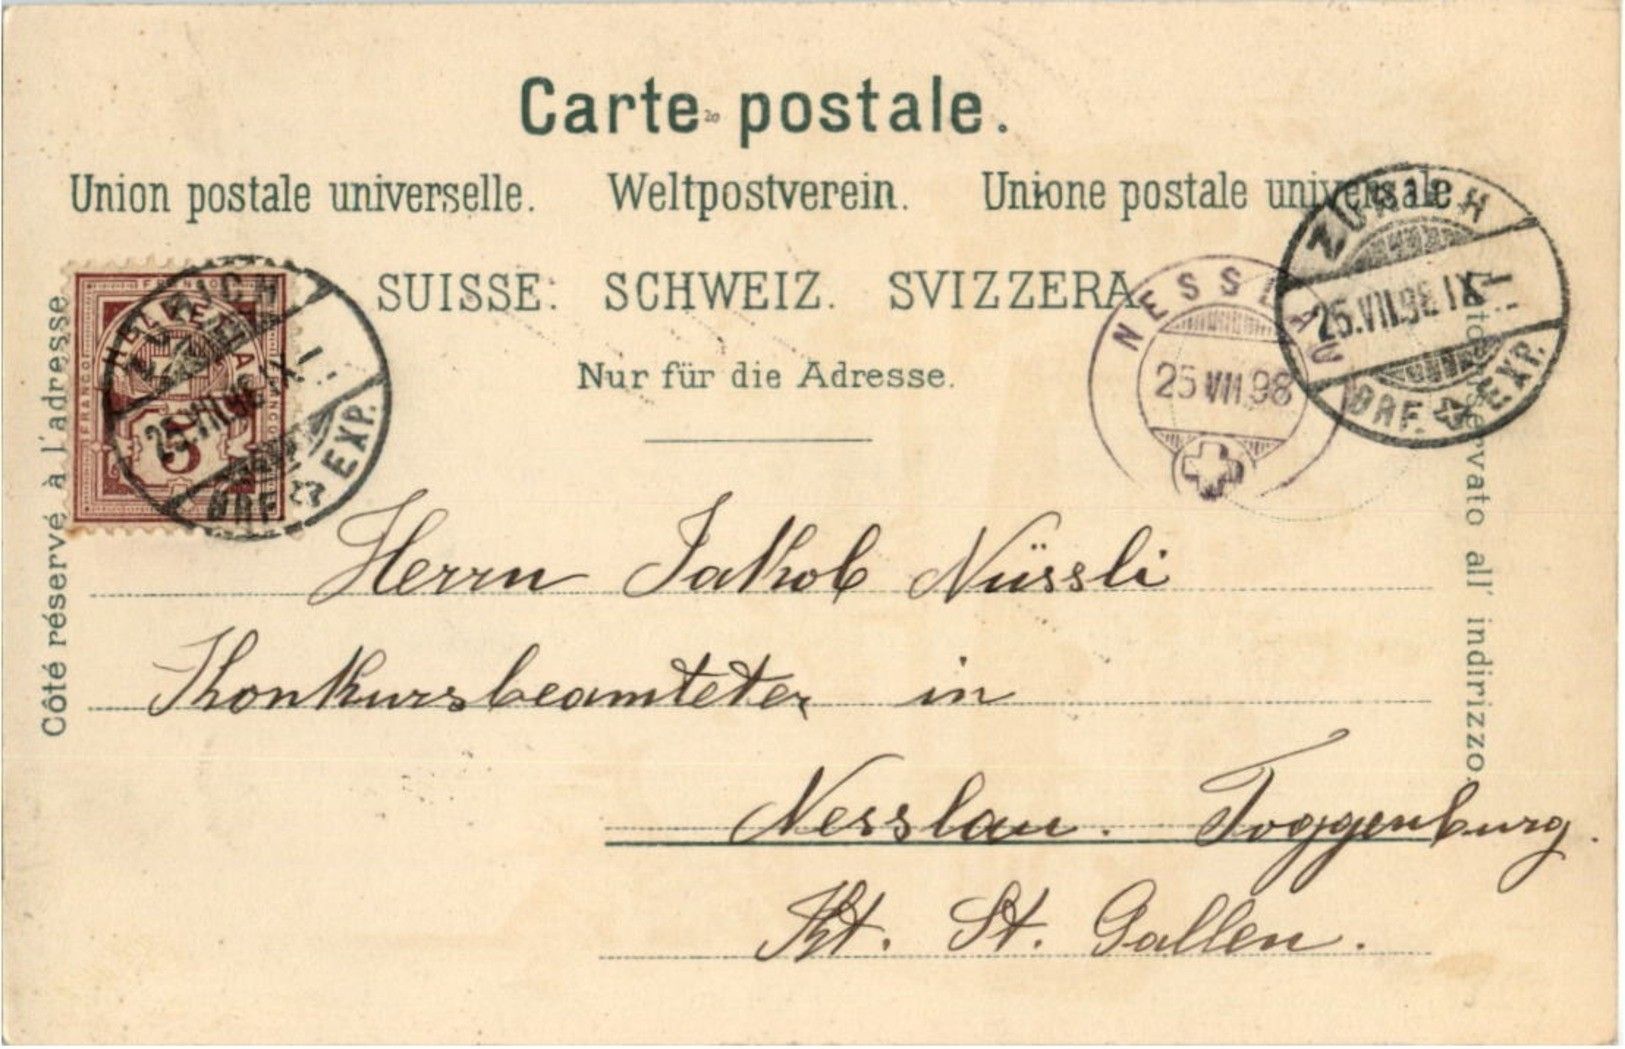 Carte postale.
Union postale universelle. Weltpostverein. Unione postale universale
SUISSE. SCHWEIZ. SVIZZERA.
Nur für die Adresse.
Côté réservé à l'adresse
HELVETIA
FRANCO
FRANCO
FRANCO
5
ZÜRICH
25.VII.98 IX
BRF. EXP.
NESSLAU
25 VII 98
ZÜRICH
25.VII.98 IX
BRF. EXP.
Lato riservato all' indirizzo.
Herrn Jakob Nüssli
Konkursbeamteter in
Nesslau. Toggenburg.
Kt. St. Gallen.